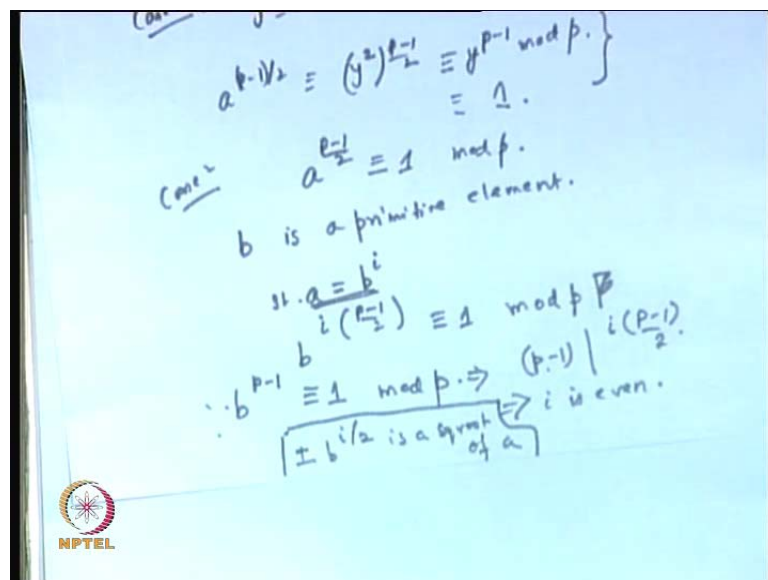 a^{(p-1)/2} ≡ (y^2)^{\frac{p-1}{2}} ≡ y^{p-1} mod p. }
≡ 1.
a^{\frac{p-1}{2}} ≡ 1 mod p.
b is a primitive element.
st. a = b^i
b^{i(\frac{p-1}{2})} ≡ 1 mod p
∴ b^{p-1} ≡ 1 mod p. ⇒ (p-1) | i(\frac{p-1}{2}).
⇒ i is even.
± b^{i/2} is a sqroot of a
NPTEL